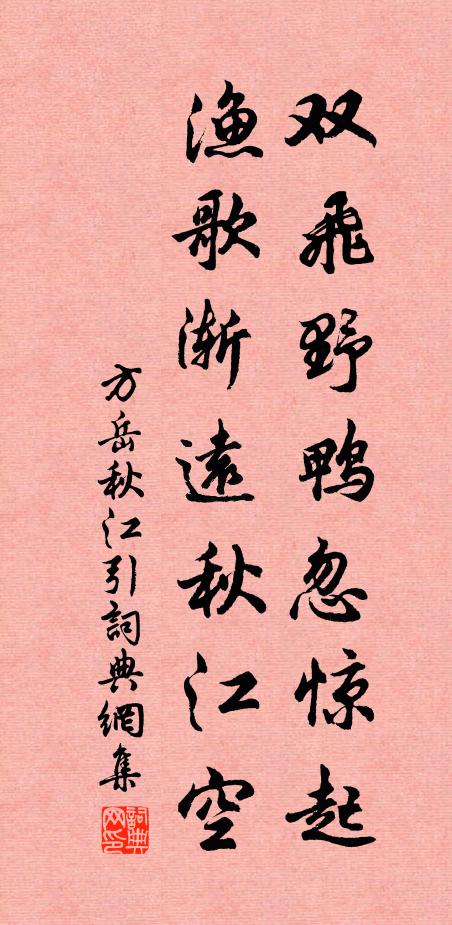 双飛野鴨忽惊起
漁歌漸遠秋江空
方岳秋江引詞典網集
詞典网印